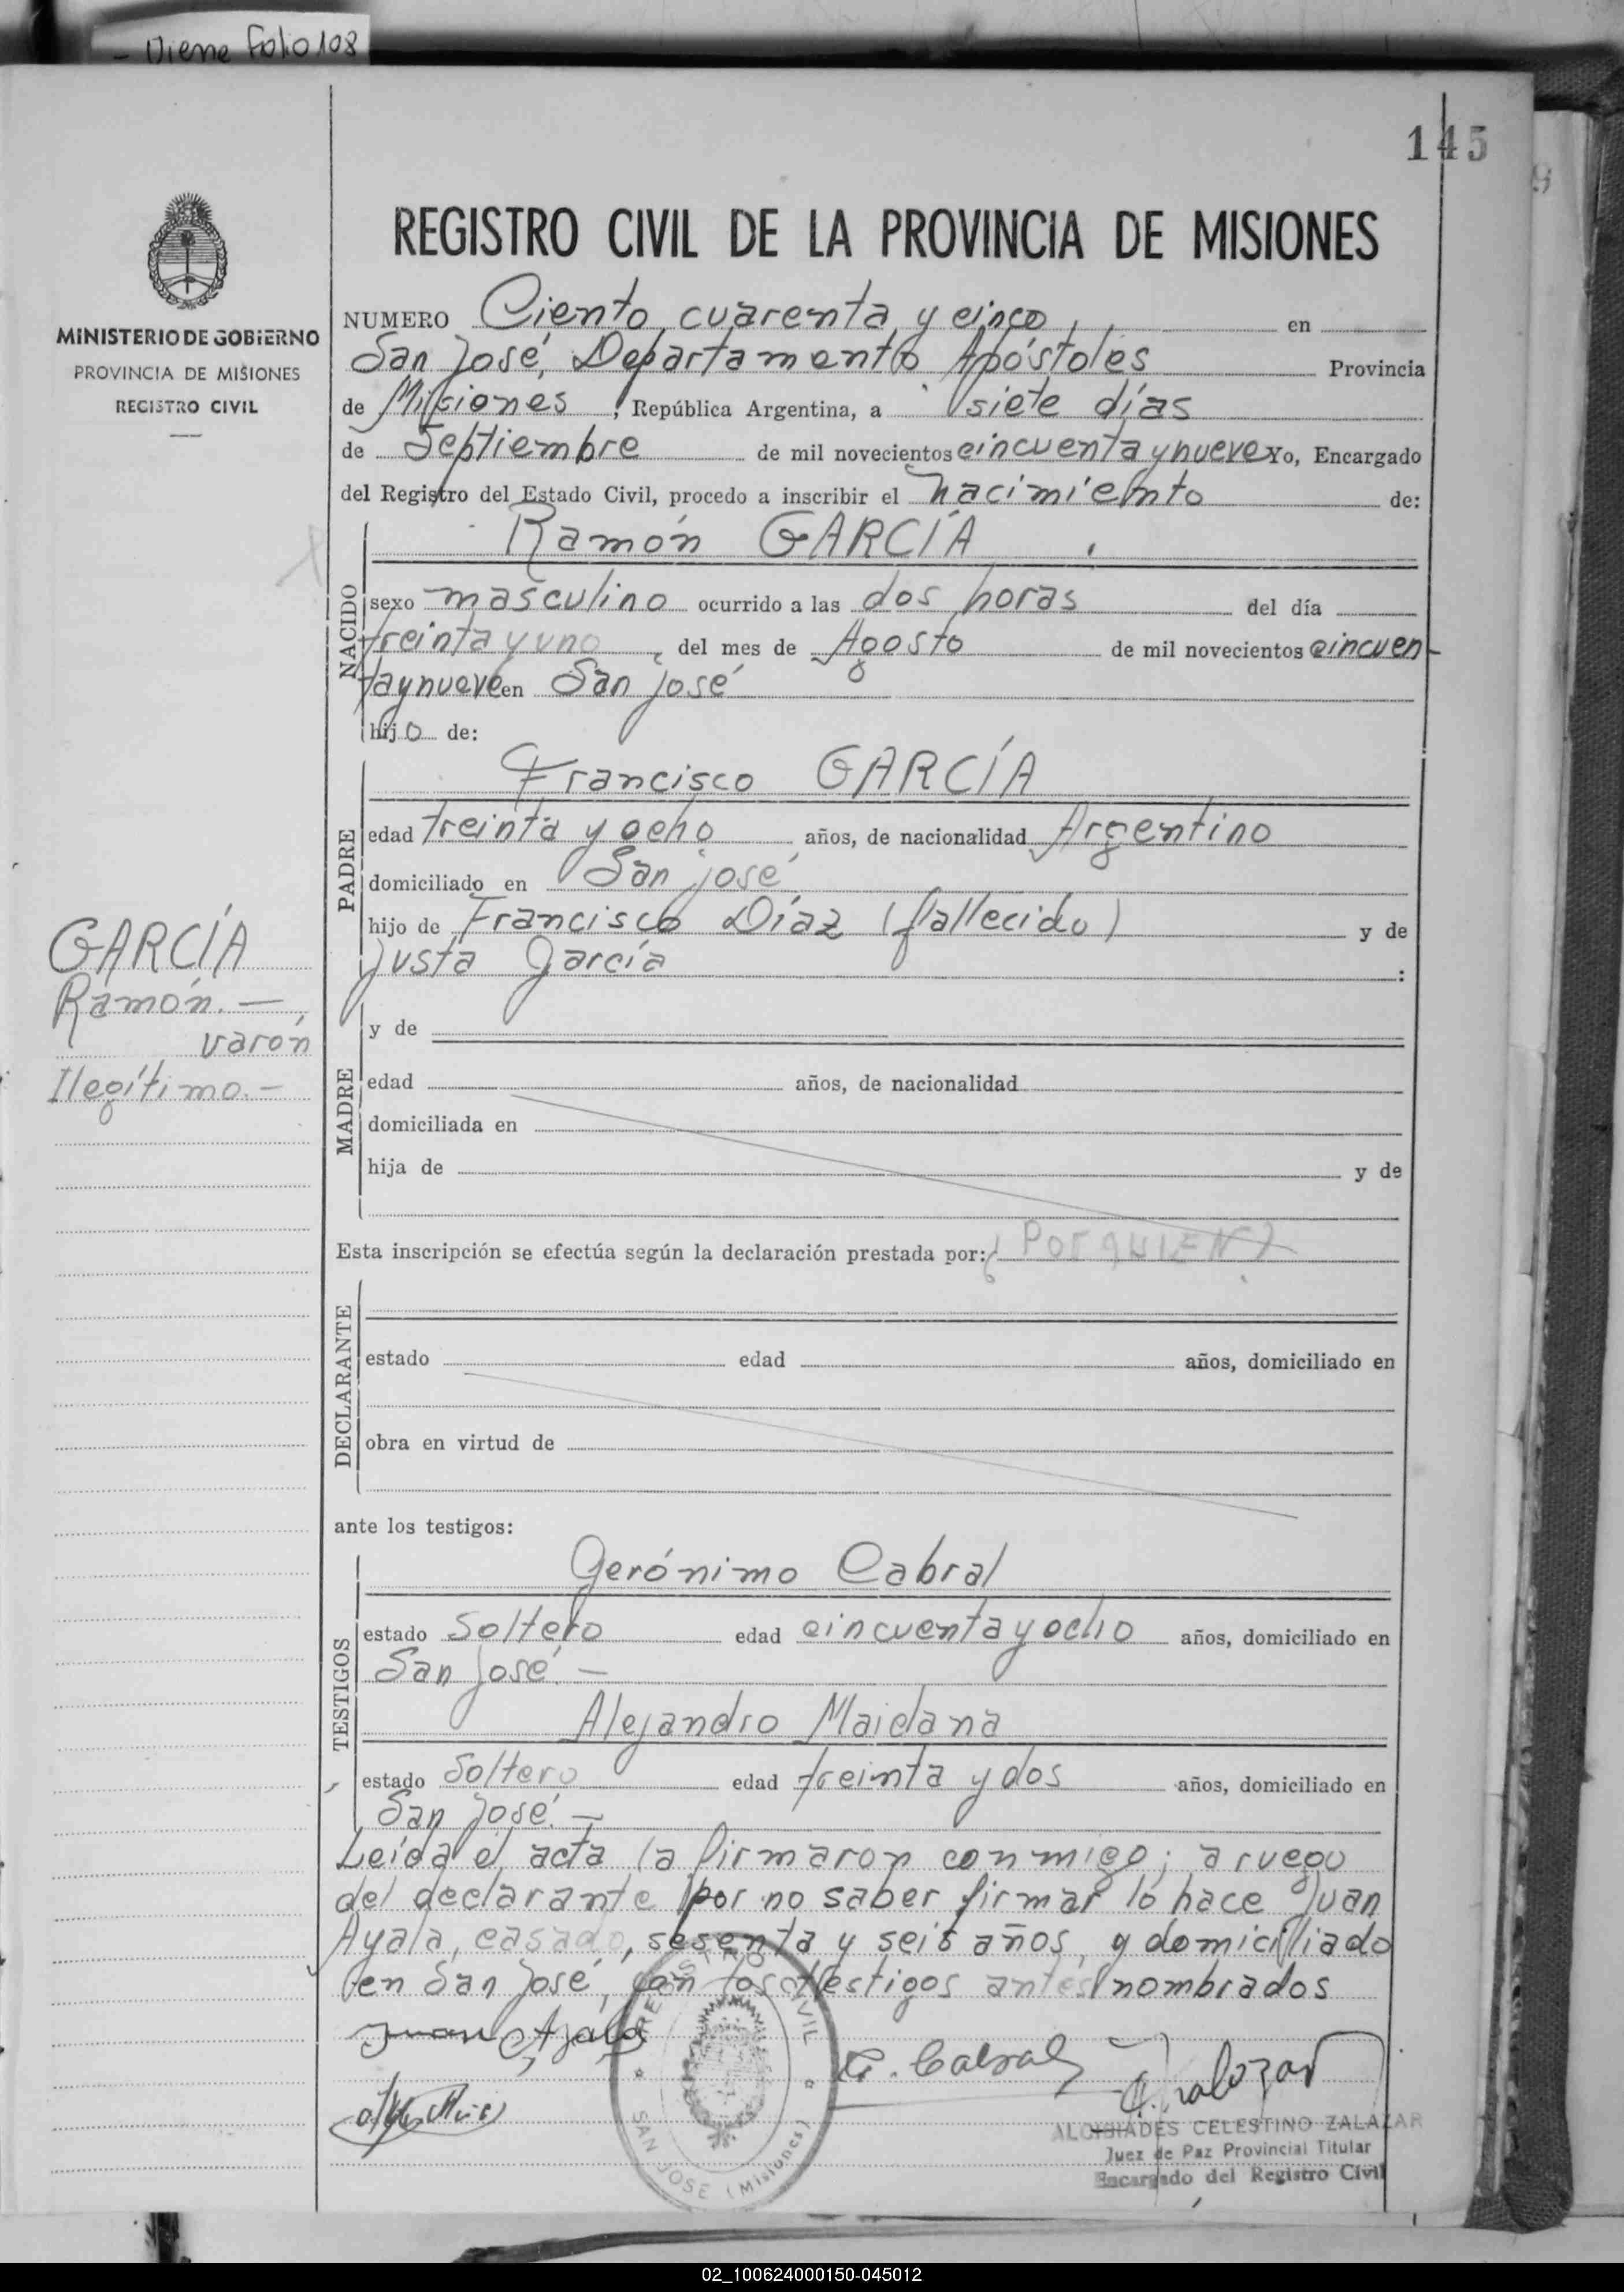 - Viene Folio 108
145
REGISTRO CIVIL DE LA PROVINCIA DE MISIONES
MINISTERIO DE GOBIERNO
PROVINCIA DE MISIONES
REGISTRO CIVIL
NUMERO Ciento cuarenta y cinco en
San José, Departamento Apóstoles Provincia
de Misiones, República Argentina, a siete días
de Septiembre de mil novecientos cincuenta y nueve Yo, Encargado
del Registro del Estado Civil, procedo a inscribir el nacimiento de:
NACIDO
Ramón GARCÍA
sexo masculino ocurrido a las dos horas del día
treinta y uno, del mes de Agosto de mil novecientos cincuen-
ta y nueve en San José
hijo de:
PADRE
Francisco GARCÍA
edad treinta y ocho años, de nacionalidad Argentino
domiciliado en San José
hijo de Francisco Díaz (fallecido) y de
Justa García :
GARCÍA
Ramón. -
varón
Ilegítimo. -
MADRE
y de
edad años, de nacionalidad
domiciliada en
hija de y de
Esta inscripción se efectúa según la declaración prestada por: ¿POR QUIEN?
DECLARANTE
estado edad años, domiciliado en
obra en virtud de
ante los testigos:
TESTIGOS
Gerónimo Cabral
estado Soltero edad cincuenta y ocho años, domiciliado en
San José. -
Alejandro Maidana
estado Soltero edad treinta y dos años, domiciliado en
San José. -
Leída el acta la firmaron conmigo; a ruego
del declarante por no saber firmar lo hace Juan
Ayala, casado, sesenta y seis años, y domicilliado
en San José, con los testigos antes nombrados
Juan Ayala
G. Cabral
REGISTRO CIVIL
SAN JOSE (Misiones)
ALCIBIADES CELESTINO ZALAZAR
Juez de Paz Provincial Titular
Encargado del Registro Civil
02_100624000150-045012